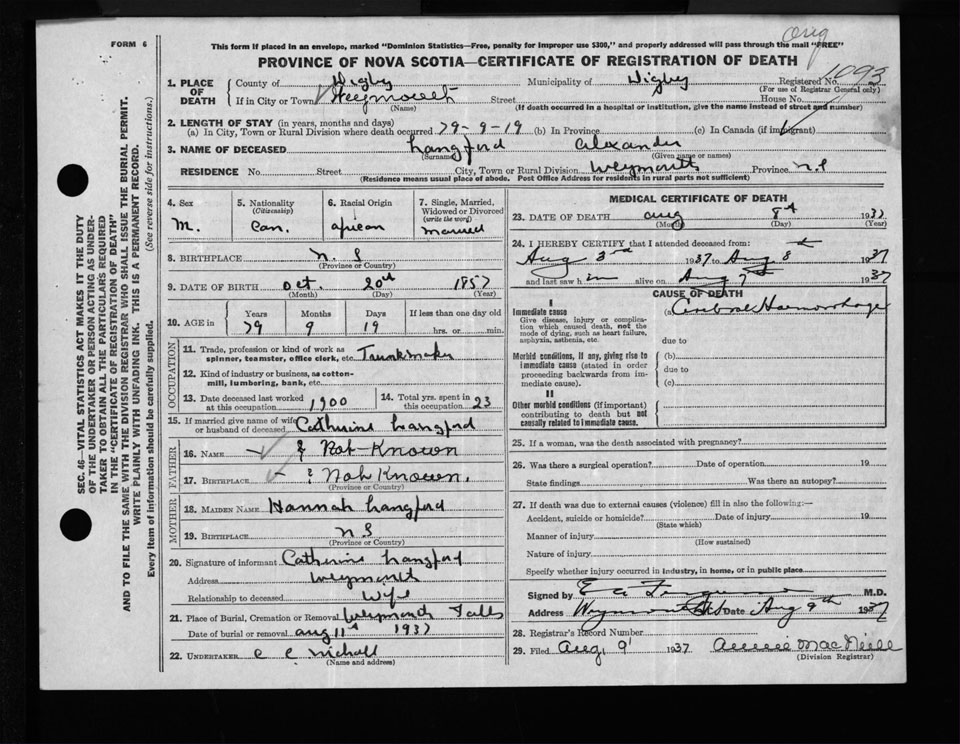 Orig
FORM 6
This form if placed in an envelope, marked "Dominion Statistics—Free, penalty for improper use $300," and properly addressed will pass through the mail "FREE"
PROVINCE OF NOVA SCOTIA—CERTIFICATE OF REGISTRATION OF DEATH
1093
1. PLACE OF DEATH
County of Digby Municipality of Digby Registered No.
(For use of Registrar General only)
If in City or Town Weymouth Street House No.
(Name) (If death occurred in a hospital or institution, give the name instead of street and number)
2. LENGTH OF STAY (in years, months and days)
(a) In City, Town or Rural Division where death occurred 79-9-19 (b) In Province (c) In Canada (if immigrant)
3. NAME OF DECEASED Langford Alexander
(Surname) (Given name or names)
RESIDENCE No. Street City, Town or Rural Division Weymouth Province N.S
(Residence means usual place of abode. Post Office Address for residents in rural parts not sufficient)
4. Sex M.
5. Nationality (Citizenship) Can.
6. Racial Origin African
7. Single, Married, Widowed or Divorced (write the word) Married
8. BIRTHPLACE N. S
(Province or Country)
9. DATE OF BIRTH Oct. 20th 1857
(Month) (Day) (Year)
10. AGE in Years Months Days If less than one day old
79 9 19 hrs. or min.
OCCUPATION
11. Trade, profession or kind of work as spinner, teamster, office clerk, etc. Trunkmaker
12. Kind of industry or business, as cotton-mill, lumbering, bank, etc.
13. Date deceased last worked at this occupation 1900
14. Total yrs. spent in this occupation 23
15. If married give name of wife or husband of deceased Catherine Langford
FATHER
16. NAME Not Known
17. BIRTHPLACE Not Known.
(Province or Country)
MOTHER
18. MAIDEN NAME Hannah Langford
19. BIRTHPLACE N. S
(Province or Country)
20. Signature of informant Catherine Langford
Address Weymouth
Relationship to deceased Wife
21. Place of Burial, Cremation or Removal Weymouth Falls
Date of burial or removal Aug 11th 1937
22. UNDERTAKER C C Nichall
(Name and address)
MEDICAL CERTIFICATE OF DEATH
23. DATE OF DEATH Aug 8th 1937
(Month) (Day) (Year)
24. I HEREBY CERTIFY that I attended deceased from:
Aug 3rd 1937 to Aug 8th 1937
and last saw him alive on Aug 7th 1937
CAUSE OF DEATH
I
Immediate cause
Give disease, injury or complication which caused death, not the mode of dying, such as heart failure, asphyxia, asthenia, etc.
(a) Cerebral Haemorrhage
due to
Morbid conditions, if any, giving rise to immediate cause (stated in order proceeding backwards from immediate cause).
(b)
due to
(c)
II
Other morbid conditions (if important) contributing to death but not causally related to immediate cause.
25. If a woman, was the death associated with pregnancy?
26. Was there a surgical operation? Date of operation 19
State findings Was there an autopsy?
27. If death was due to external causes (violence) fill in also the following:—
Accident, suicide or homicide? Date of injury 19
(State which)
Manner of injury
(How sustained)
Nature of injury
Specify whether injury occurred in industry, in home, or in public place
Signed by E a M.D.
Address Weymouth N.S. Date Aug 9th 1937
28. Registrar's Record Number
29. Filed Aug, 9 1937 Annie MacNeill
(Division Registrar)
SEC. 46—VITAL STATISTICS ACT MAKES IT THE DUTY
OF THE UNDERTAKER OR PERSON ACTING AS UNDER-
TAKER TO OBTAIN ALL THE PARTICULARS REQUIRED
IN THE "CERTIFICATE OF REGISTRATION OF DEATH"
AND TO FILE THE SAME WITH THE DIVISION REGISTRAR WHO SHALL ISSUE THE BURIAL PERMIT.
WRITE PLAINLY WITH UNFADING INK. THIS IS A PERMANENT RECORD.
Every item of information should be carefully supplied. (See reverse side for instructions.)